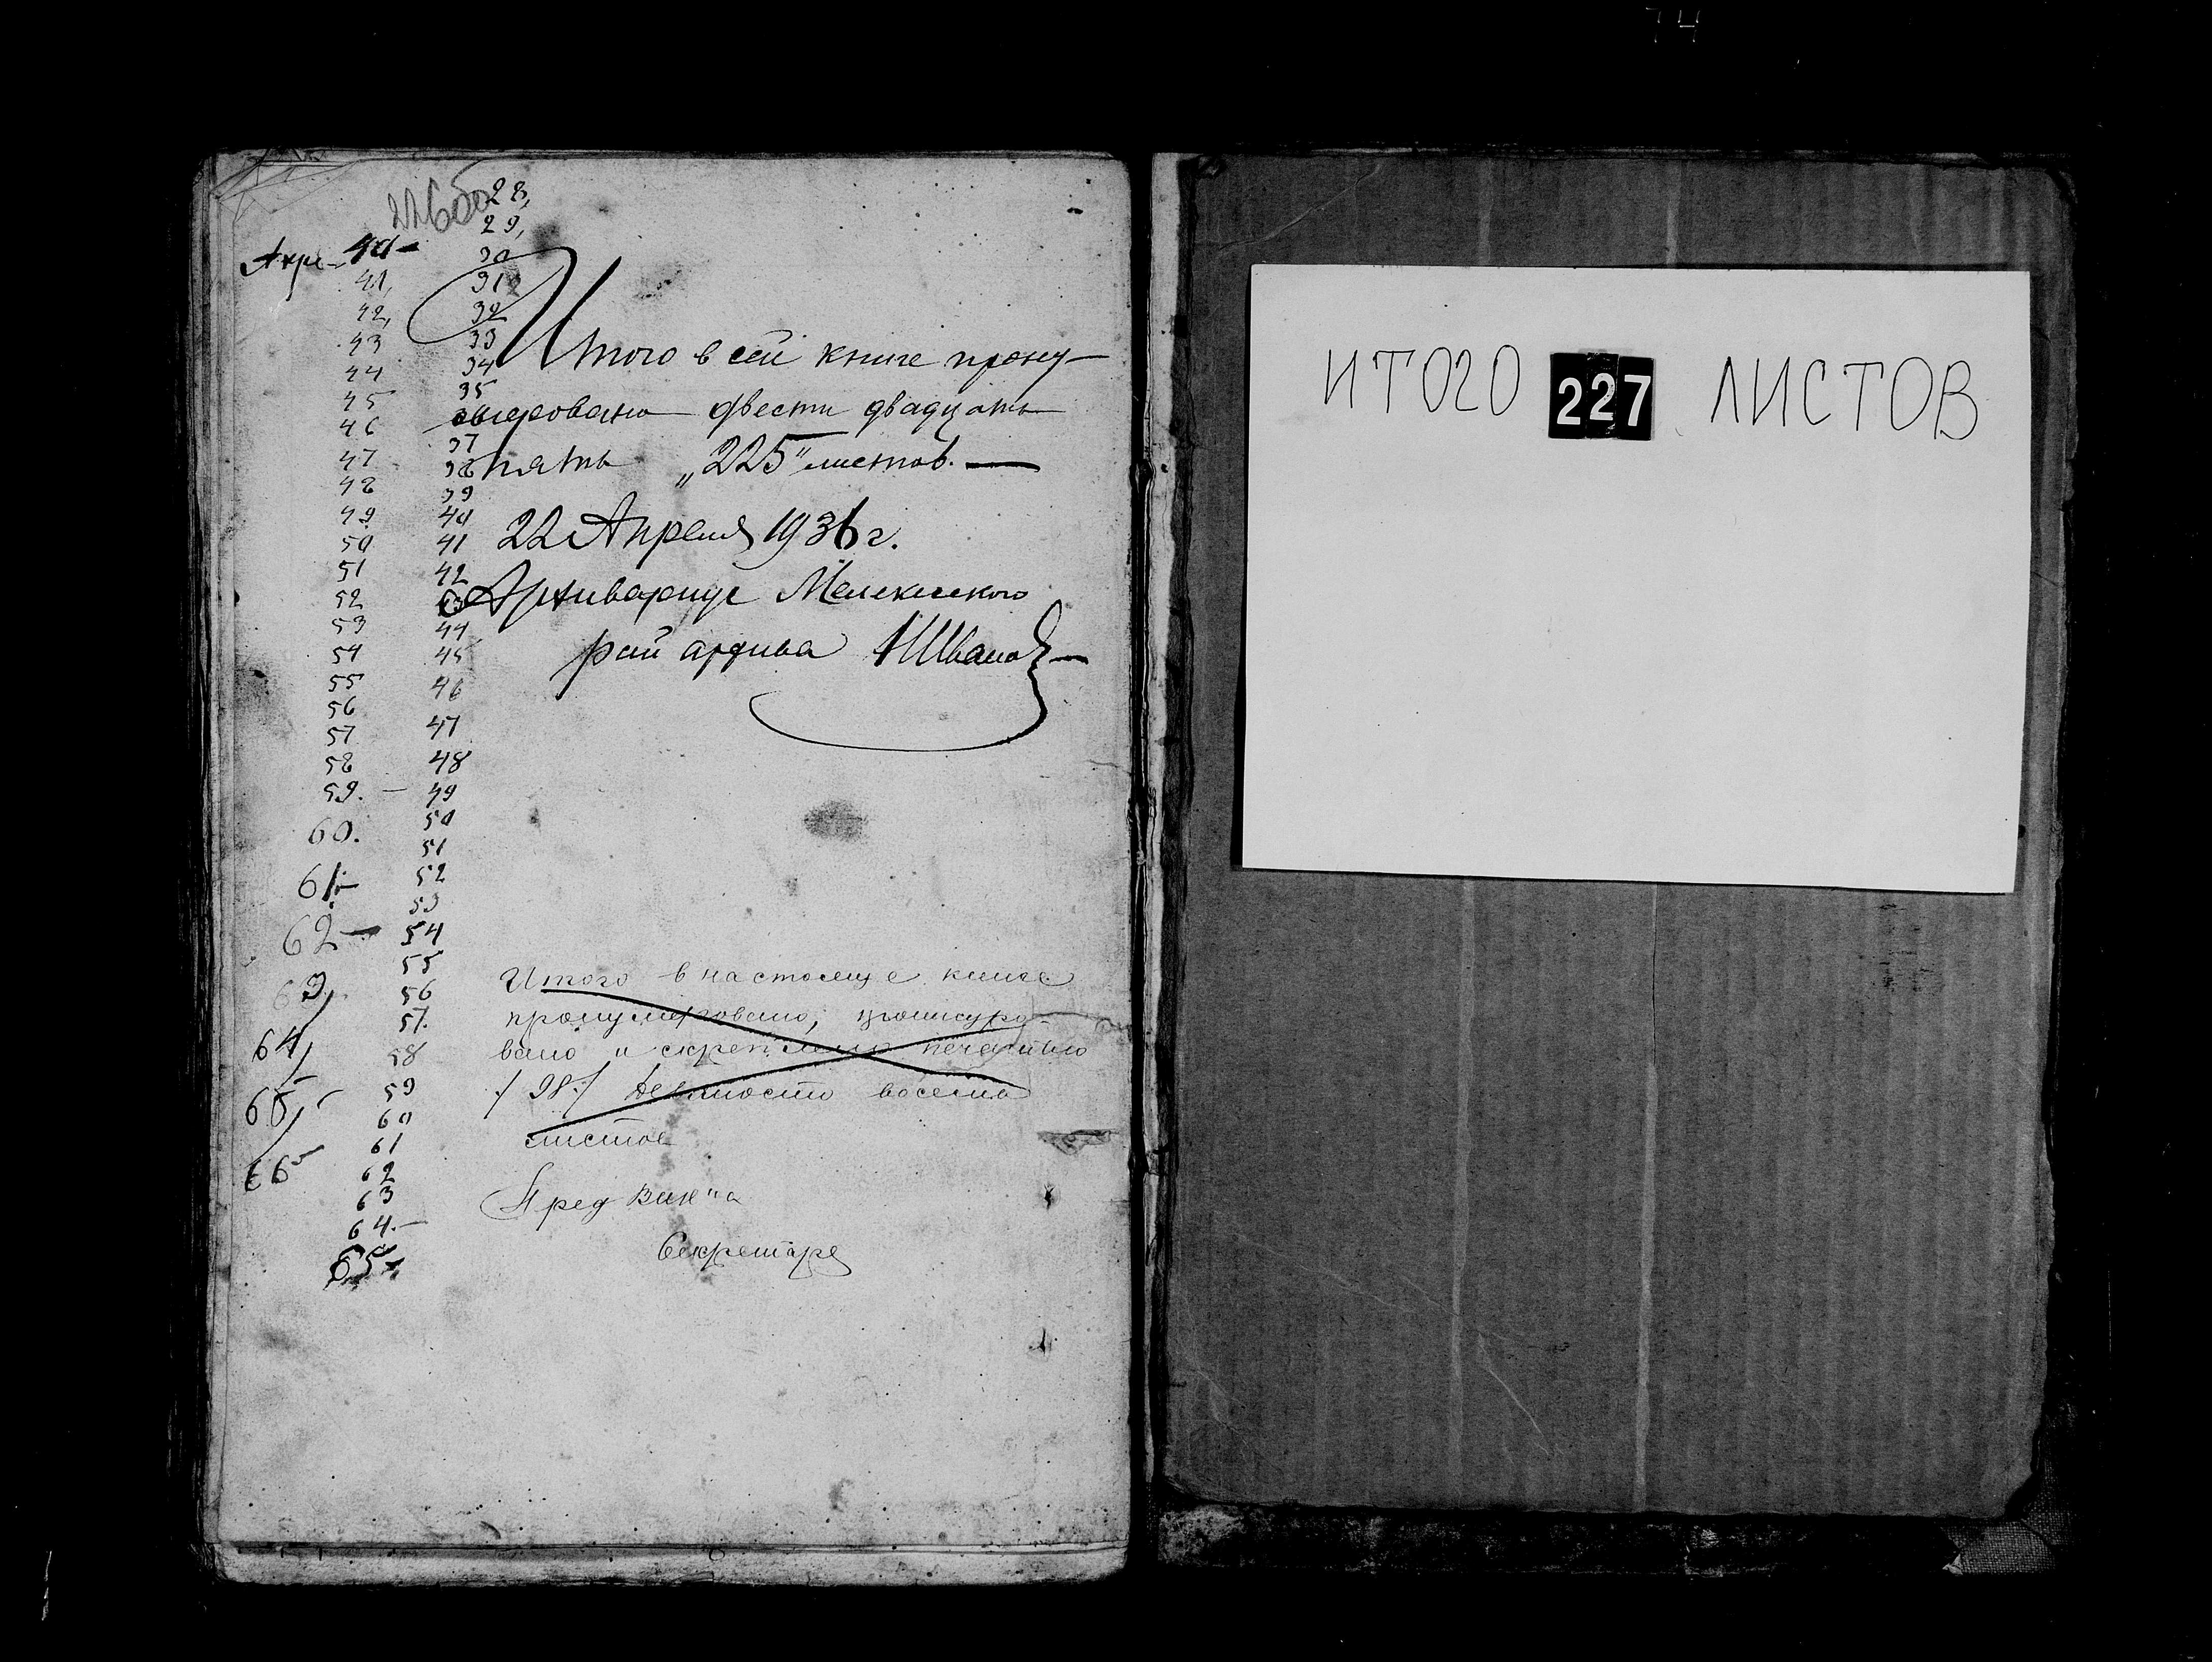 226об
Акре - 40 -
41,
42,
43
44
45
46
47
48
49
50
51
52
53
54
55
56
57
58
59. -
60.
61. -
62 -
63,
64,
65, -
66
28,
29,
30
31
32
33
34
35
37
38
39
40
41
42
43
44
45
46
47
48
49
50
51
52
53
54
55
56
57.
58
59
60
61
62
63
64. -
65 -
Итого в сей книге прону-
мировано двести двадцать
пять „225" листов. —
22 Апреля 1936 г.
Архивариус Мелекесского
рай архива
Итого в настояще книге
пронумеровано, прошнуро-
вано и скреплено печатью
/98/ девяносто восемь
листов
Пред Вик"а
Секретарь
ИТОГО 227 ЛИСТОВ